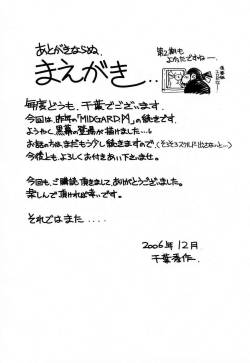 あとがきならぬ、
まえがき..
第2期も
よかったですねー。
毎度どうも、千葉でございます。
今回は、昨年の「MIDGARD」の続きです。
ようやく黒幕の登場が描けました…。
お話のほうは、まだもう少し続きますので、
今後とも、よろしくお付きあい下さいませ。
今回も、ご購読頂きまして、ありがとうございました。
楽しんで頂ければ幸いです。
それではまた....
2006年12月
千葉秀作